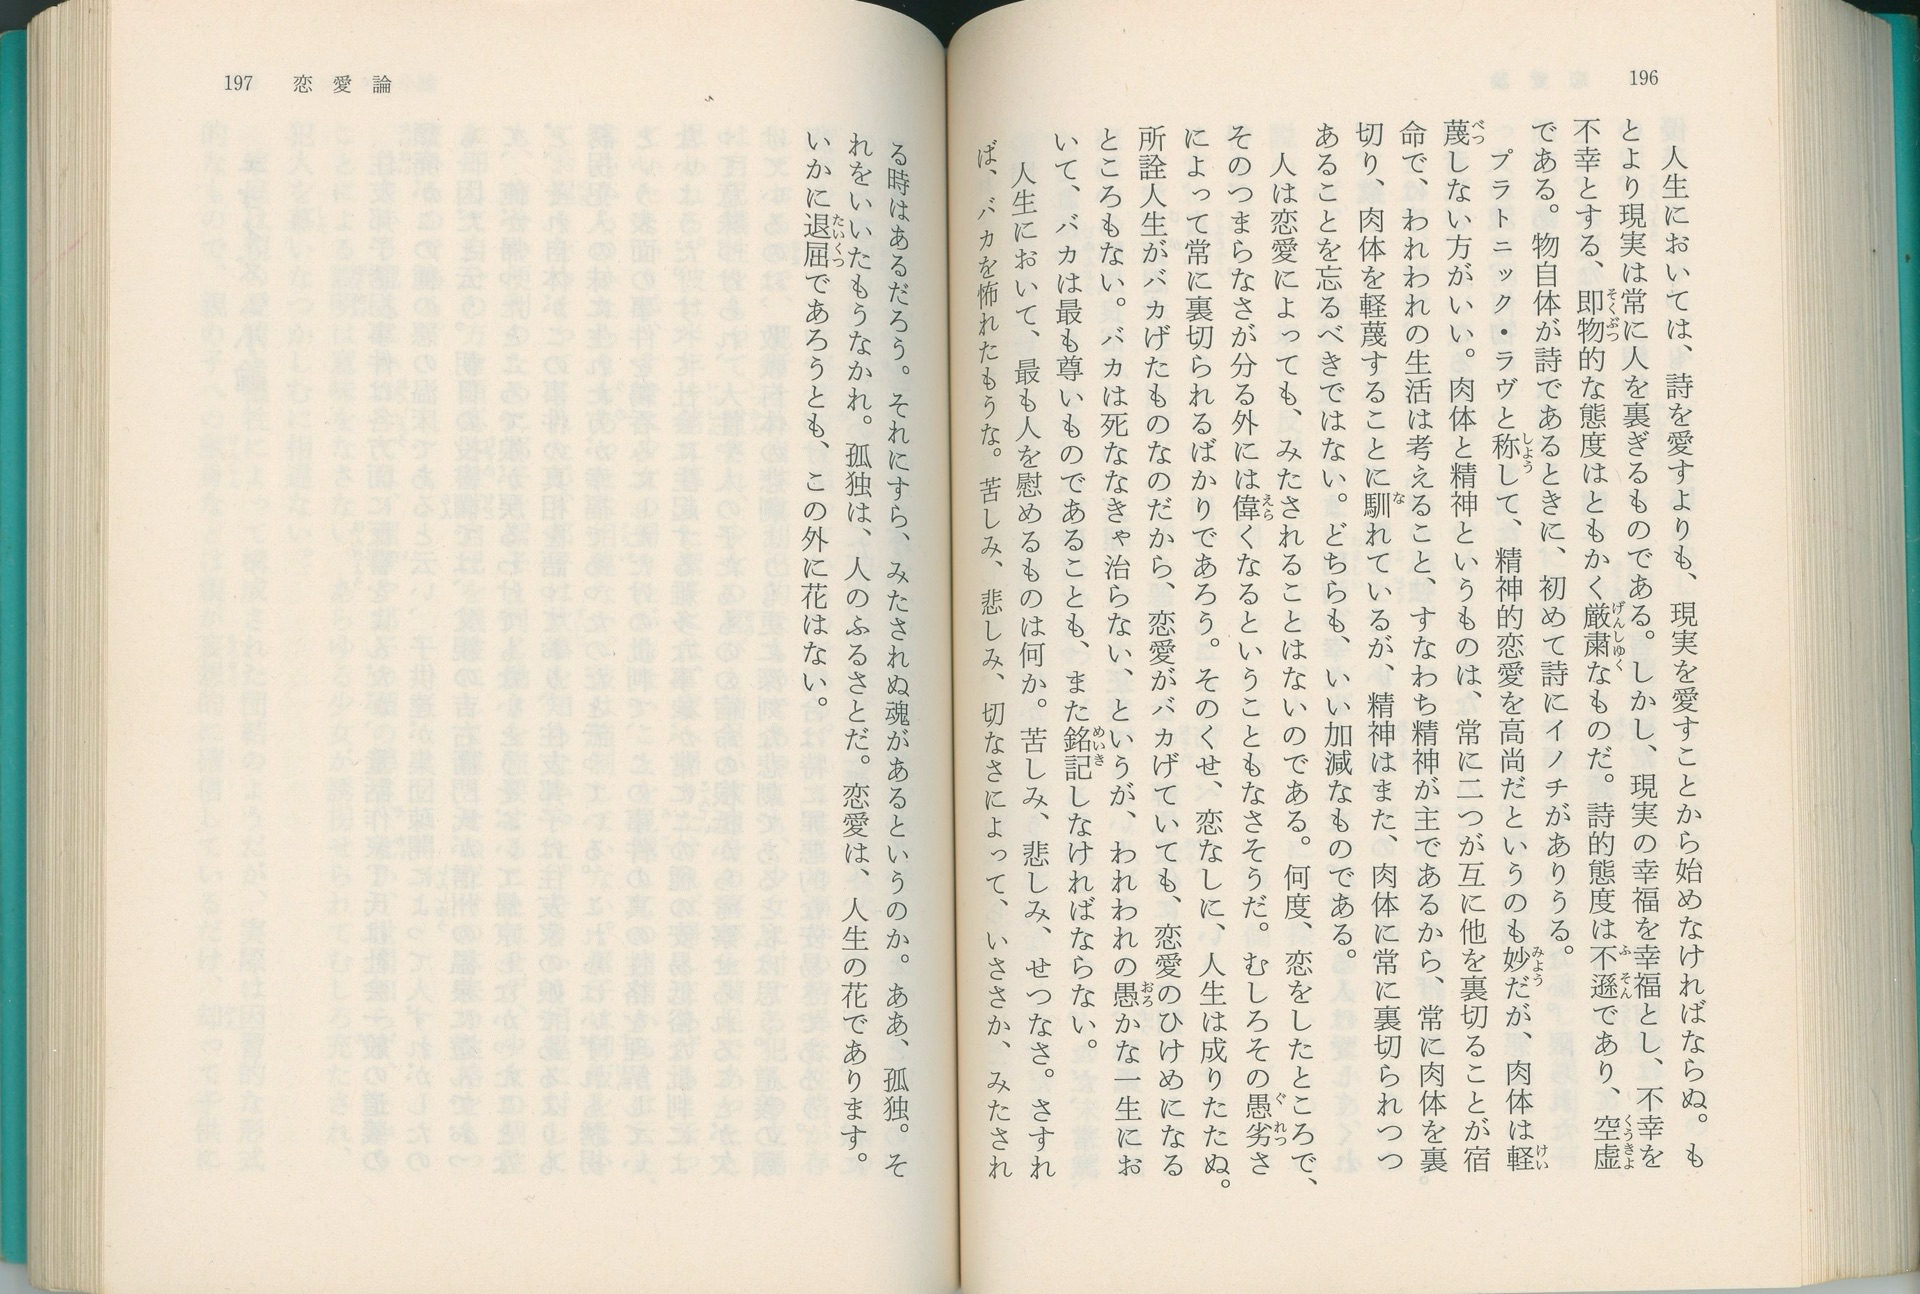 196
人生においては、詩を愛すよりも、現実を愛すことから始めなければならぬ。も
とより現実は常に人を裏ぎるものである。しかし、現実の幸福を幸福とし、不幸を
不幸とする、即物的な態度はともかく厳粛なものだ。詩的態度は不遜であり、空虚
である。物自体が詩であるときに、初めて詩にイノチがありうる。
プラトニック・ラヴと称して、精神的恋愛を高尚だというのも妙だが、肉体は軽
蔑しない方がいい。肉体と精神というものは、常に二つが互に他を裏切ることが宿
命で、われわれの生活は考えること、すなわち精神が主であるから、常に肉体を裏
切り、肉体を軽蔑することに馴れているが、精神はまた、肉体に常に裏切られつつ
あることを忘るべきではない。どちらも、いい加減なものである。
人は恋愛によっても、みたされることはないのである。何度、恋をしたところで、
そのつまらなさが分る外には偉くなるということもなさそうだ。むしろその愚劣さ
によって常に裏切られるばかりであろう。そのくせ、恋なしに、人生は成りたたぬ。
所詮人生がバカげたものなのだから、恋愛がバカげていても、恋愛のひけめになる
ところもない。バカは死ななきゃ治らない、というが、われわれの愚かな一生にお
いて、バカは最も尊いものであることも、また銘記しなければならない。
人生において、最も人を慰めるものは何か。苦しみ、悲しみ、せつなさ。さすれ
ば、バカを怖れたもうな。苦しみ、悲しみ、切なさによって、いささか、みたされ
197 恋愛論
る時はあるだろう。それにすら、みたされぬ魂があるというのか。ああ、孤独。そ
れをいいたもうなかれ。孤独は、人のふるさとだ。恋愛は、人生の花であります。
いかに退屈であろうとも、この外に花はない。